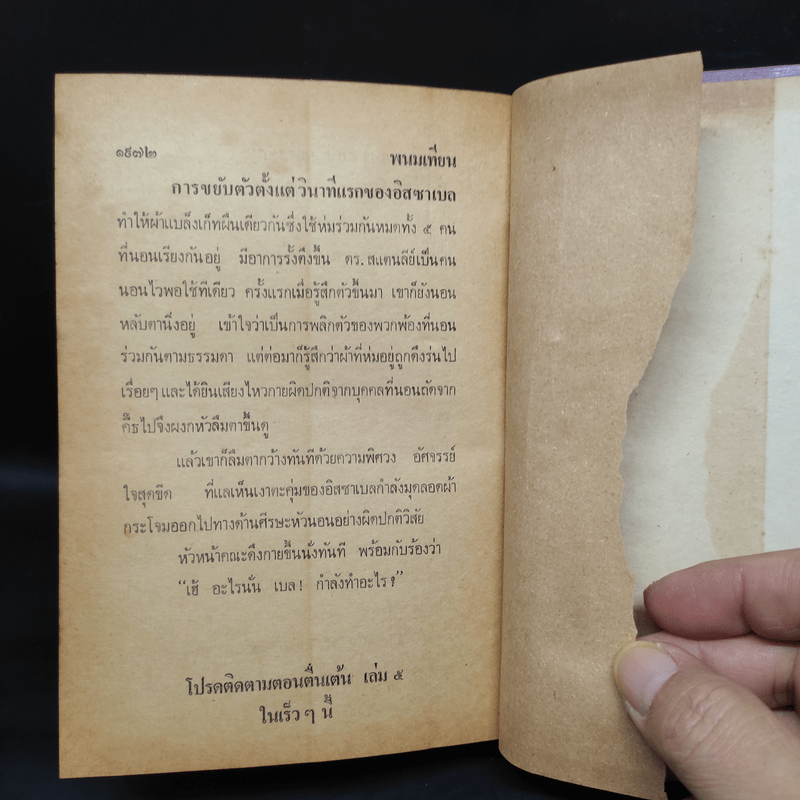 ๑๕๗๒ พนมเทียน
การขยับตัวตั้งแต่วินาทีแรกของอิสซาเบล
ทำให้ผ้าแบล็งเก็ทผืนเดียวกันซึ่งใช้ห่มร่วมกันหมดทั้ง ๕ คน
ที่นอนเรียงกันอยู่ มีอาการรั้งตึงขึ้น ดร.สแตนลีย์เป็นคน
นอนไวพอใช้ทีเดียว ครั้งแรกเมื่อรู้สึกตัวขึ้นมา เขาก็ยังนอน
หลับตานิ่งอยู่ เข้าใจว่าเป็นการพลิกตัวของพวกพ้องที่นอน
ร่วมกันตามธรรมดา แต่ต่อมาก็รู้สึกว่าผ้าที่ห่มอยู่ถูกดึงร่นไป
เรื่อยๆ และได้ยินเสียงไหวกายผิดปกติจากบุคคลที่นอนถัดจาก
คี๊ธไปจึงผงกหัวลืมตาขึ้นดู
แล้วเขาก็ลืมตากว้างทันทีด้วยความพิศวง อัศจรรย์
ใจสุดขีด ที่แลเห็นเงาตะคุ่มของอิสซาเบลกำลังมุดลอดผ้า
กระโจมออกไปทางด้านศีรษะหัวนอนอย่างผิดปกติวิสัย
หัวหน้าคณะดึงกายขึ้นนั่งทันที พร้อมกับร้องว่า
“เฮ้ อะไรนั่น เบล! กำลังทำอะไร?”
โปรดติดตามตอนตื่นเต้น เล่ม ๕
ในเร็วๆ นี้